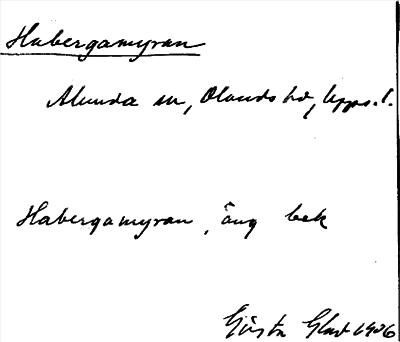 Habergamyran
Alunda sn, Olands hd, Upps. l.
Habergamyran, äng bek
Gösta 1906